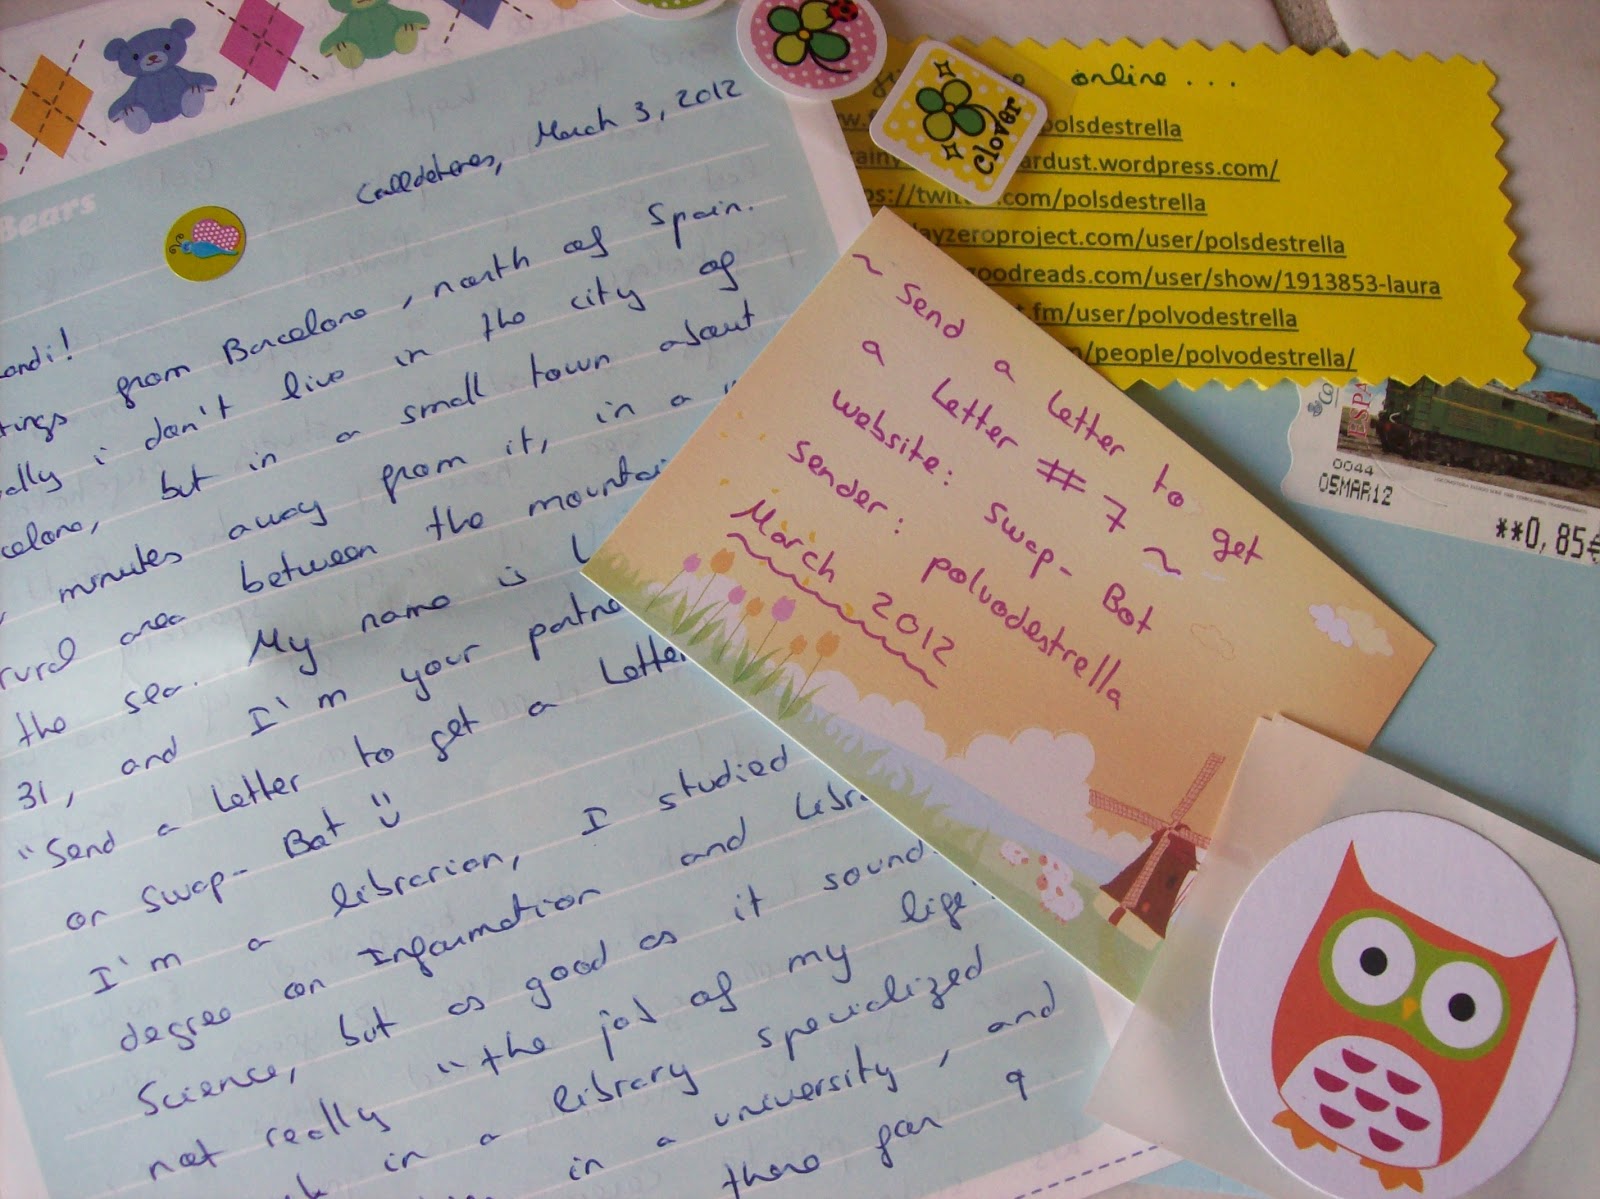 Bears
Calldetenes, March 3, 2012
andi!
tings from Barcelona, north of Spain.
ally i don't live in the city of
celona, but in a small town about
minutes away from it, in a
rural area between the mountai
the sea. My name is L
31, and I'm your partne
"Send a Letter to get a Letter
on Swap-Bot
I'm a librarian, I studied
degree on Information and Libr
Science, but as good as it sound
not really "the job of my life"
in a library specialized
in a university, and
there for 9
Clover
online...
polsdestrella
ardust.wordpress.com/
ps://twit com/polsdestrella
ayzeroproject.com/user/polsdestrella
goodreads.com/user/show/1913853-laura
t.fm/user/polvodestrella
m/people/polvodestrella/
~ Send a Letter to get
a Letter # 7 ~
website: Swap-Bot
sender: polvodestrella
March 2012
ESPA
0044
05MAR12
**0,85€